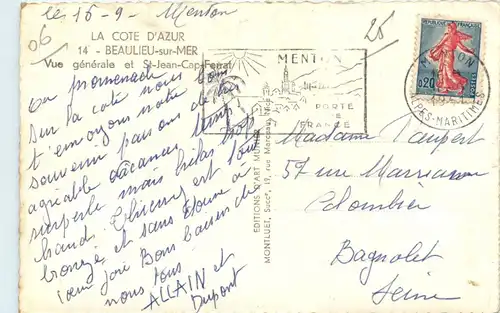 le 15-9- Menton
06
25
LA COTE D'AZUR
14 - BEAULIEU-sur-MER
Vue générale et St-Jean-Cap-Ferrat
En promenade
sur la coté nous
t'envoyons notre bon
souvenir passons de très
agréable vacances temps
superbe mais hélas trop
chaud. Thierry est tout
bronze et sans donne à
cœur joie Bons baisers de
nous tous
ALLAIN et
Dupont
EDITIONS D'ART MUNIER
MONTLUET, Succr, 19, rue Marceau, Nice
MENTON
PORTE
DE
FRANCE
REPUBLIQUE FRANCAISE
0,20
MENTON
ALPES-MARITIMES
Madame Paupert
57 rue Marianne
Colombier
Bagnolet
Seine